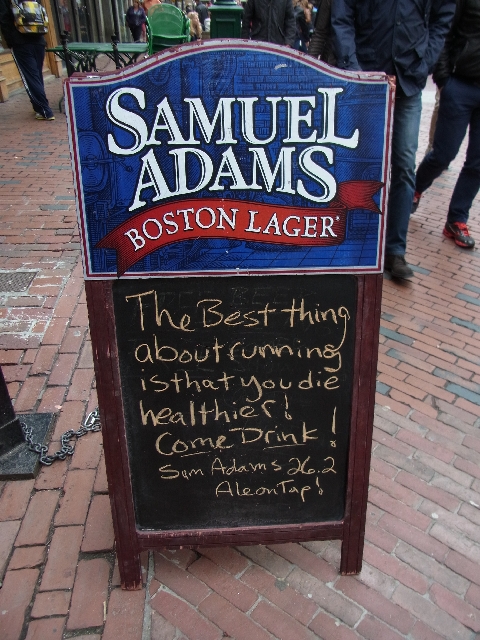 SAMUEL
ADAMS
BOSTON LAGER
The Best thing
about running
is that you die
healthier!
Come Drink!
Sam Adams 26.2
Ale on Tap!